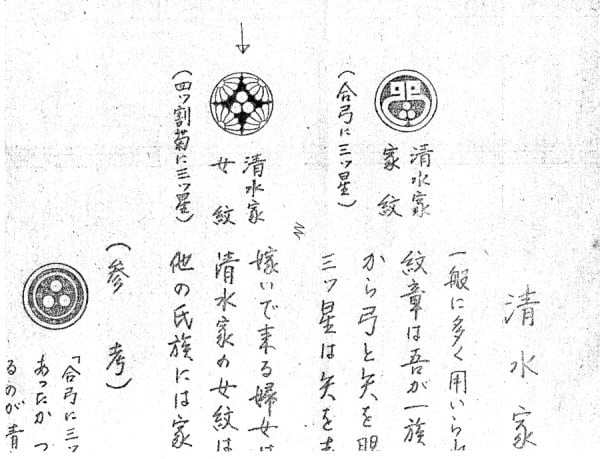 清水家
一般に多く用いられ
紋章は吾が一族
から弓と矢を
三ッ星は矢を
清水家
家紋
(合弓に三ッ星)
嫁いで来る婦女は
清水家の女紋は
他の氏族には家
清水家
女紋
(四ッ割菊に三ッ星)
(参考)
「合弓に三ッ
あったか つ
るのが青